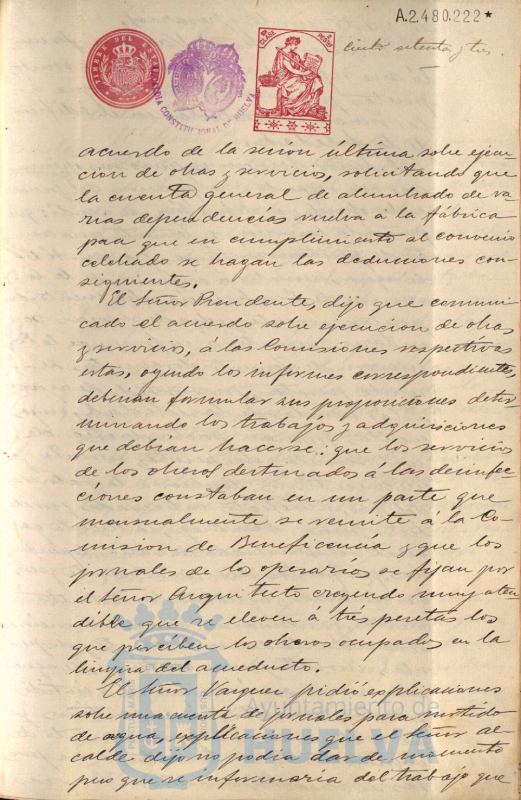 A.2.480.222*
ciento setenta y tres.
TIMBRE DEL ESTADO
CONSTITUCIONAL DE HUELVA
acuerdo de la sesión última sobre ejecu-
cion de obras y servicios, solicitando que
la cuenta general de alumbrado de va-
rias dependencias vuelva á la fábrica
para que en cumplimiento al convenio
celebrado se hagan las deducciones con-
siguientes.
El Señor Presidente, dijo que comuni-
cado el acuerdo sobre ejecucion de obras
y servicios, á las Comisiones respectivas
estas, oyendo los informes correspondientes,
debian formular sus proposiciones deter-
minando los trabajos y adquisiciones
que debian hacerse: que los servicios
de los obreros destinados á las desinfec-
ciones constaban en un parte que
mensualmente se remite á la Co-
mision de Beneficencia y que los
jornales de los operarios se fijan por
el Señor Arquitecto creyendo muy aten-
dible que se eleven á tres pesetas los
que perciben los obreros ocupados en la
limpia del acueducto.
El Señor Vazquez pidió explicaciones
sobre una cuenta de jornales para surtido
de agua, explicaciones que el señor al-
calde dijo no podia dar de momento
pero que se informaria del trabajo que
Ayuntamiento de
HUELVA